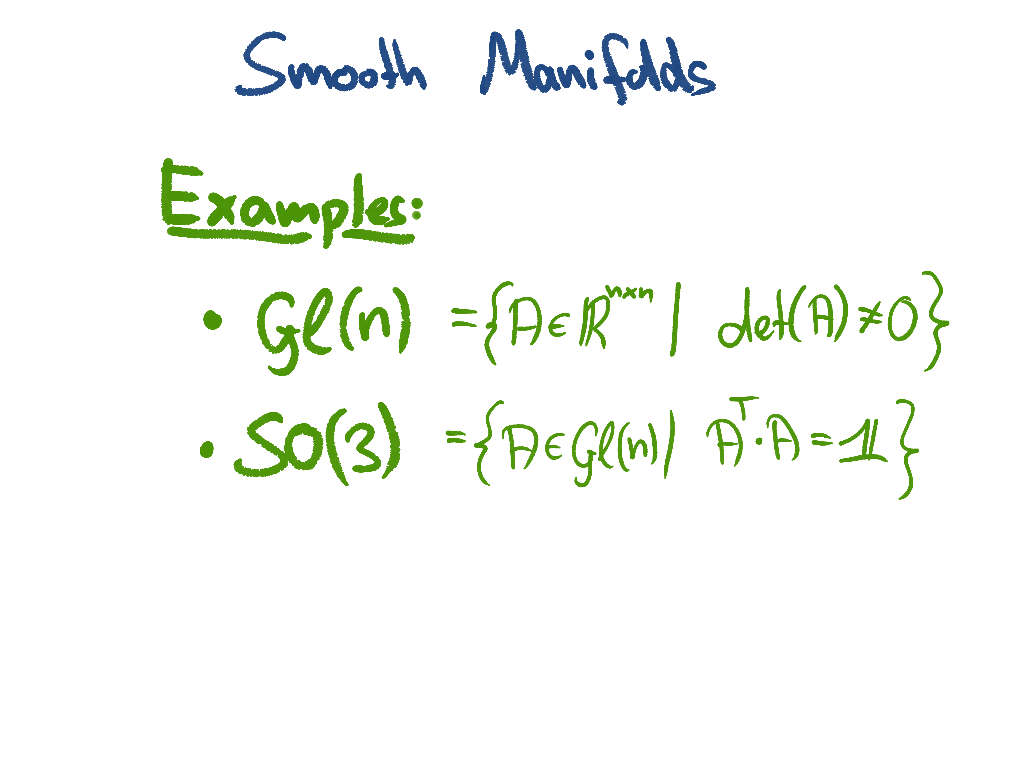 Smooth Manifolds
Examples:
• Gl(n) = {A ∈ ℝⁿˣⁿ | det(A) ≠ 0}
• SO(3) = {A ∈ Gl(n) | Aᵀ · A = 𝟙}